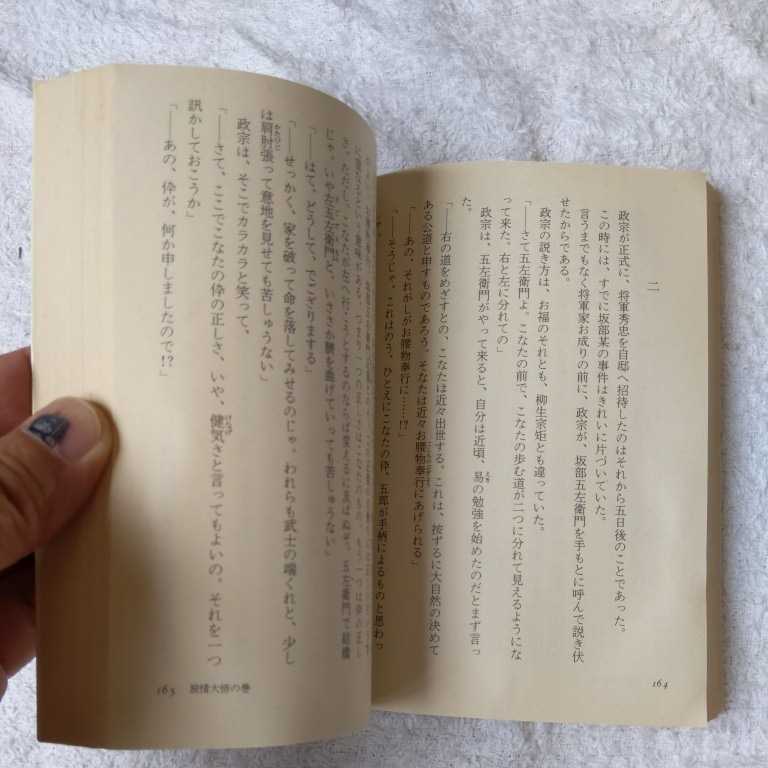 二
政宗が正式に、将軍秀忠を自邸へ招待したのはそれから五日後のことであった。
この時には、すでに坂部某の事件はきれいに片づいていた。
言うまでもなく将軍家お成りの前に、政宗が、坂部五左衛門を手もとに呼んで説き伏
せたからである。
政宗の説き方は、お福のそれとも、柳生宗矩とも違っていた。
「――さて五左衛門よ。こなたの前で、こなたの歩む道が二つに分れて見えるようにな
って来た。右と左に分れての」
政宗は、五左衛門がやって来ると、自分は近頃、易の勉強を始めたのだとまず言っ
た。
「――右の道をめざすとの、こなたは近々出世する。これは、按ずるに大自然の決めて
ある公道と申すものであろう。そなたは近々お腰物奉行にあげられる」
「――あの、それがしがお腰物奉行に……!?」
「――そうじゃ。これはのう、ひとえにこなたの伜、五郎が手柄によるものと思わっ
164
じゃ。いや左五左衛門と、いささか腰を曲げていっても苦しゅうない」
「――はて、どうして、でござりまする」
「――せっかく、家を破って命を落してみせるのじゃ。われらも武士の端くれと、少し
は肩肘張って意地を見せても苦しゅうない」
政宗は、そこでカラカラと笑って、
「――さて、ここでこなたの伜の正しさ、いや、健気さと言ってもよいの。それを一つ
訊かしておこうか」
「――あの、伜が、何か申しましたので!?」
165 旅情大悟の巻